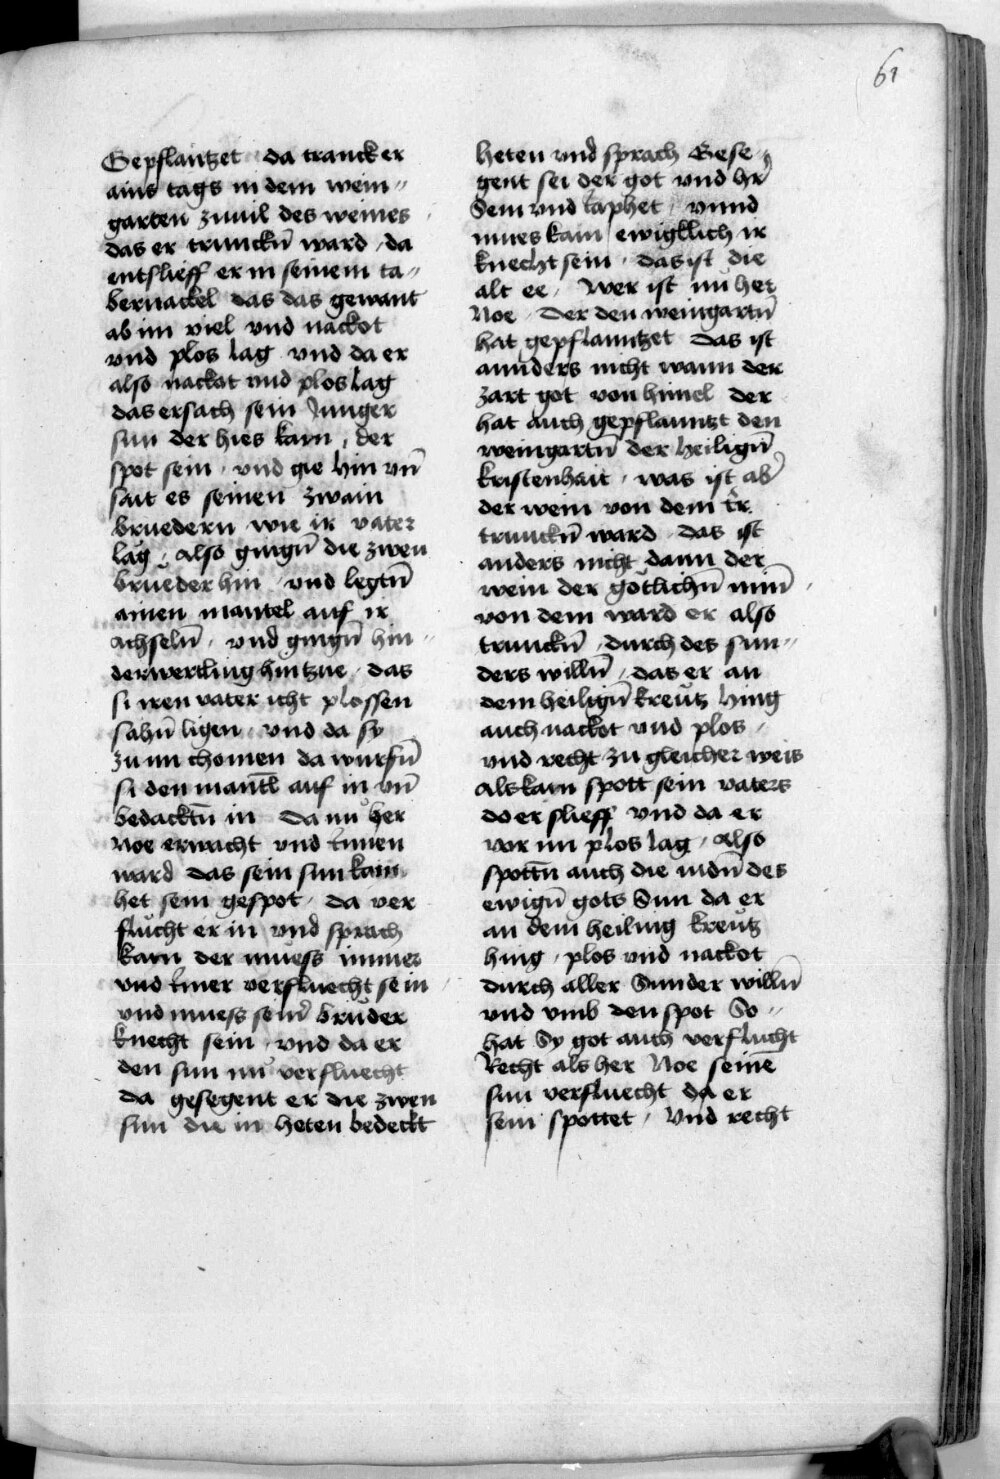 61
Gepflantzet da tranck er
ains tags in dem wein〃
garten zuuil des weines
das er trunckn̄ ward / da
entslieff er in seinem ta〃
bernackel das das gewant
ab im viel vnd nackot
vnd plos lag vnd da er
also nackat vnd plos lag
das ersach sein Junger
sun der hies kam / der
spot sein / vnd gie hin vn̄
sait es seinen zwain
bruedern wie ir vater
lag / also gingn̄ die zwen
brueder hin / vnd legtn̄
ainen mantel auf ir
achseln̄ / vnd gingn̄ hin〃
derwertling hintzue / das
si iren vater icht plossen
sahn̄ ligen / vnd da sy
zu im chomen da wurfn̄
si den mantl̄ auf in vn̄
bedacktn̄ in Da nu her
Noe erwacht vnd Innen
ward das sein sun kam
het sein gespot / da ver
flucht er in vnd sprach
kam der muess immer
vnd Imer verfluecht sein
vnd muess seiner bruder
knecht sein / vnd da er
den sun nu verfluecht
da gesegent er die zwen
sun die in heten bedeckt
heten vnd sprach Gese〃
gent sei der got vnd hr̄
Sem vnd Iaphet / vnnd
mues kam ewigklich ir
knecht sein / das ist die
alt ee / Wer ist nu her
Noe / Der den weingartn̄
hat gepflanntzet das ist
annders nicht wann der
zart got von himel der
hat auch gepflanntzt den
weingartn̄ der heilign̄
kristenhait / was ist aber
der wein von dem er
trunckn̄ ward / das ist
anders nicht dann der
wein der götlichn̄ min̄
von dem ward er also
trunckn̄ / durch des sun〃
ders willn̄ / das er an
dem heilign̄ kreutz hing
auch nackot vnd plos /
vnd recht zu gleicher weis
als kam spott sein vaters
do er slieff vnd da er
vor im plos lag / also
spottn̄ auch die iudn̄ des
ewign̄ gots Sun da er
an dem heiling kreutz
hing / plos vnd nackot
durch aller Sunder willn̄
vnd vmb den spot So〃
hat Sy got auch verflucht
Recht als her Noe seinē
sun verfluecht da er
sein spottet / Vnd recht